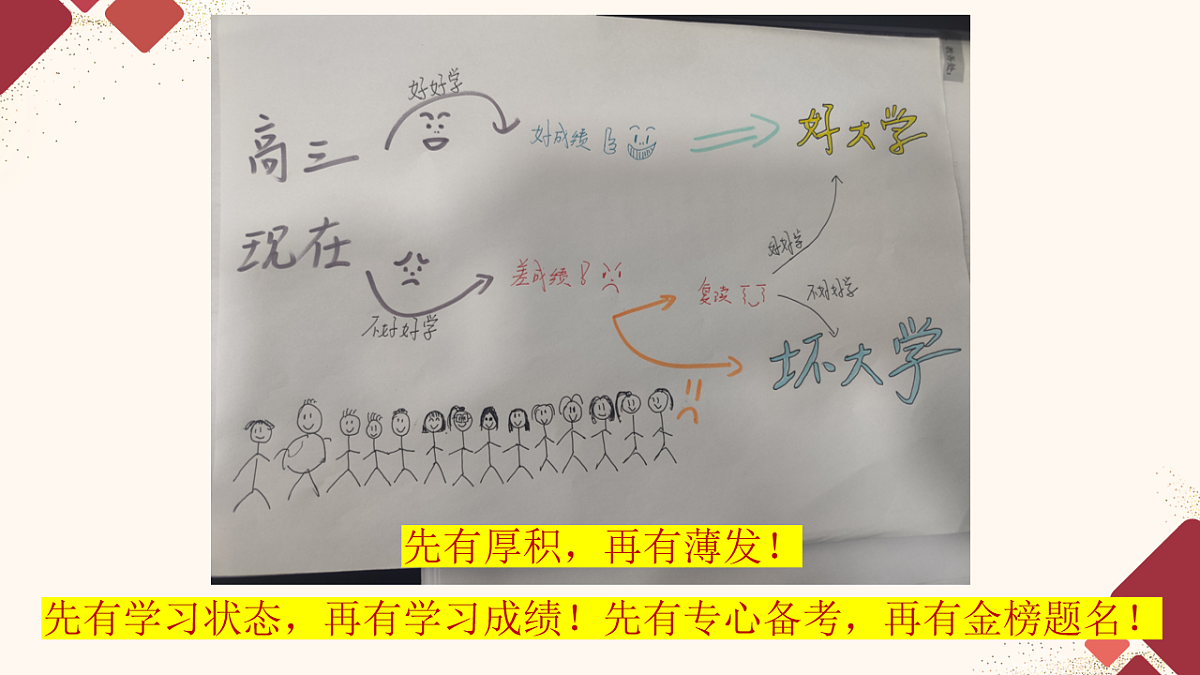 好好学
高三
好成绩
好大学
现在
好好学
差成绩
复读
不好好学
不好好学
坏大学
先有厚积，再有薄发！
先有学习状态，再有学习成绩！先有专心备考，再有金榜题名！